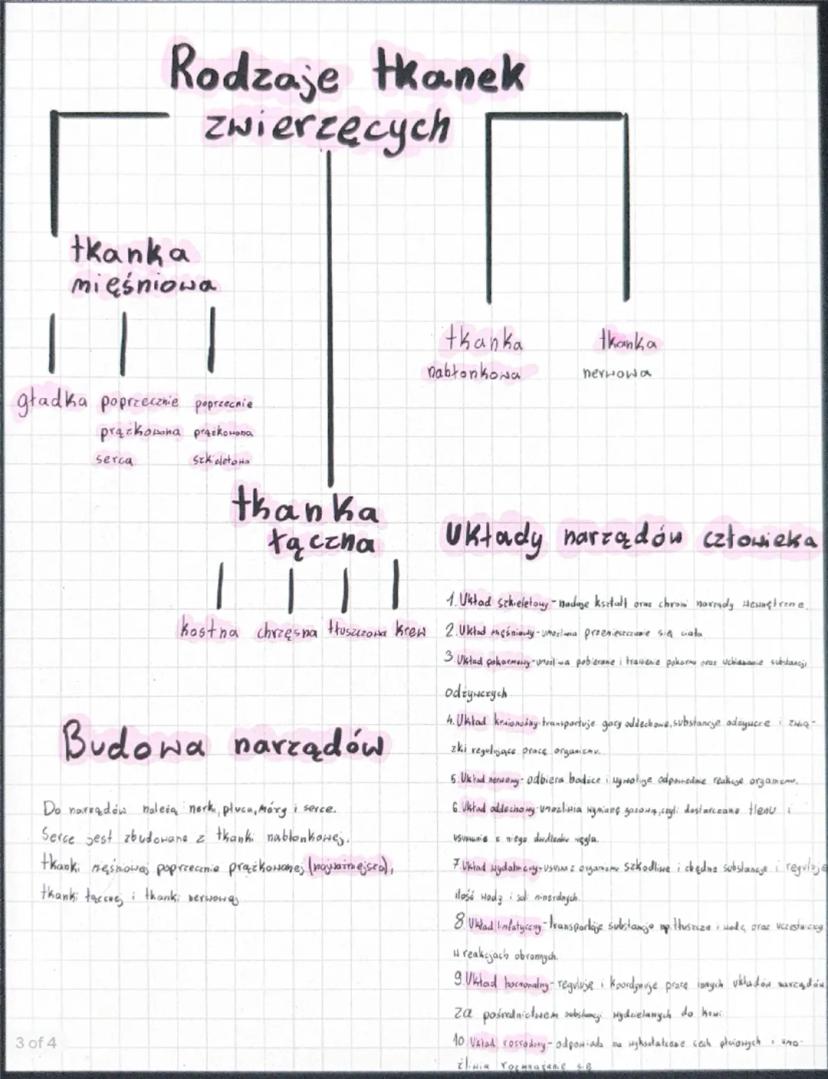 Rodzaje tkanek
zwierzęcych
tkanka
mięśniowa
gładka
poprzecznie
prążkowana
serca
poprzecnie
prążkowana
szkieletowa
tkanka
nabłonkowa
tkanka
nerwowa
tkanka
łączna
kostna chrzęsna tłuszczowa krew
Budowa narządów
Do narządów należą nerk, płuca, mózg i serce.
Serce jest zbudowane z tkanki nabłonkowej,
tkanki mięśniowej poprzecznie prążkowanej (najważniejsza),
tkanki łącznej i tkanki nerwowej
Układy narządów człowieka
1. Układ szkieletowy - nadaje kształt oraz chroni narządy wewnętrzne.
2. Układ mięśniowy - umożliwia przemieszczanie się ciała
3 Układ pokarmowy - umożliwia pobieranie i trawienie pokarmu oraz wchłanianie substancji
odżywczych
4. Układ krwionośny - transportuje gazy oddechowe, substancje odżywcze i zwią-
zki regulujące pracę organizmu.
5. Układ nerwowy - odbiera bodźce i wywołuje odpowiednie reakcje organizmu.
6. Układ oddechowy - umożliwia wymianę gazową, czyli dostarczanie tlenu i
usuwanie z niego dwutlenku węgla.
7. Układ wydalniczy - usuwa z organizmu szkodliwe i zbędne substancje i reguluje
ilość wody i soli mineralnych.
8 Układ limfatyczny - transportuje substancje np. tłuszcze i wodę oraz uczestniczy
w reakcjach obronnych.
9. Układ hormonalny - reguluję i koordynuje pracę innych układów narządów
za pośrednictwem substancji wydzielanych do krwi.
10 Układ rozrodczy - odpowiada za wykształcenie cech płciowych i umo-
żliwia rozmnażanie się
3 of 4